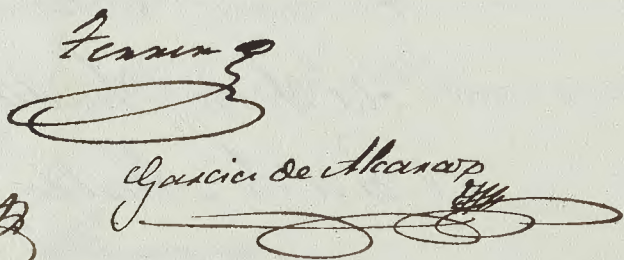 Ferrer
Garcia de Alcaraz